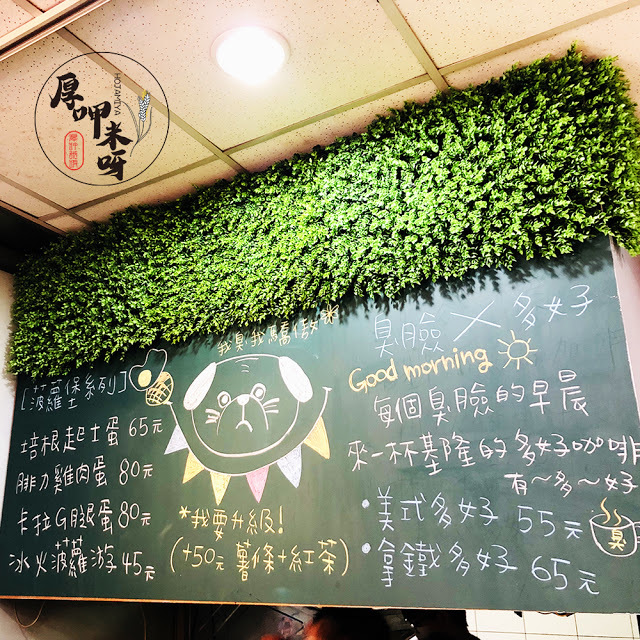 厚呷米呀
HOJAMIYA
我臭我驕傲
[菠蘿堡系列]
培根起士蛋 65元
腓力雞肉蛋 80元
卡拉G腿蛋 80元
冰火菠蘿游 45元
*我要升級!
(+50元 薯條+紅茶)
臭臉×多好
Good morning
每個臭臉的早晨
來一杯基隆的多好咖啡
有~多~好
·美式多好 55元
·拿鐵多好 65元
臭